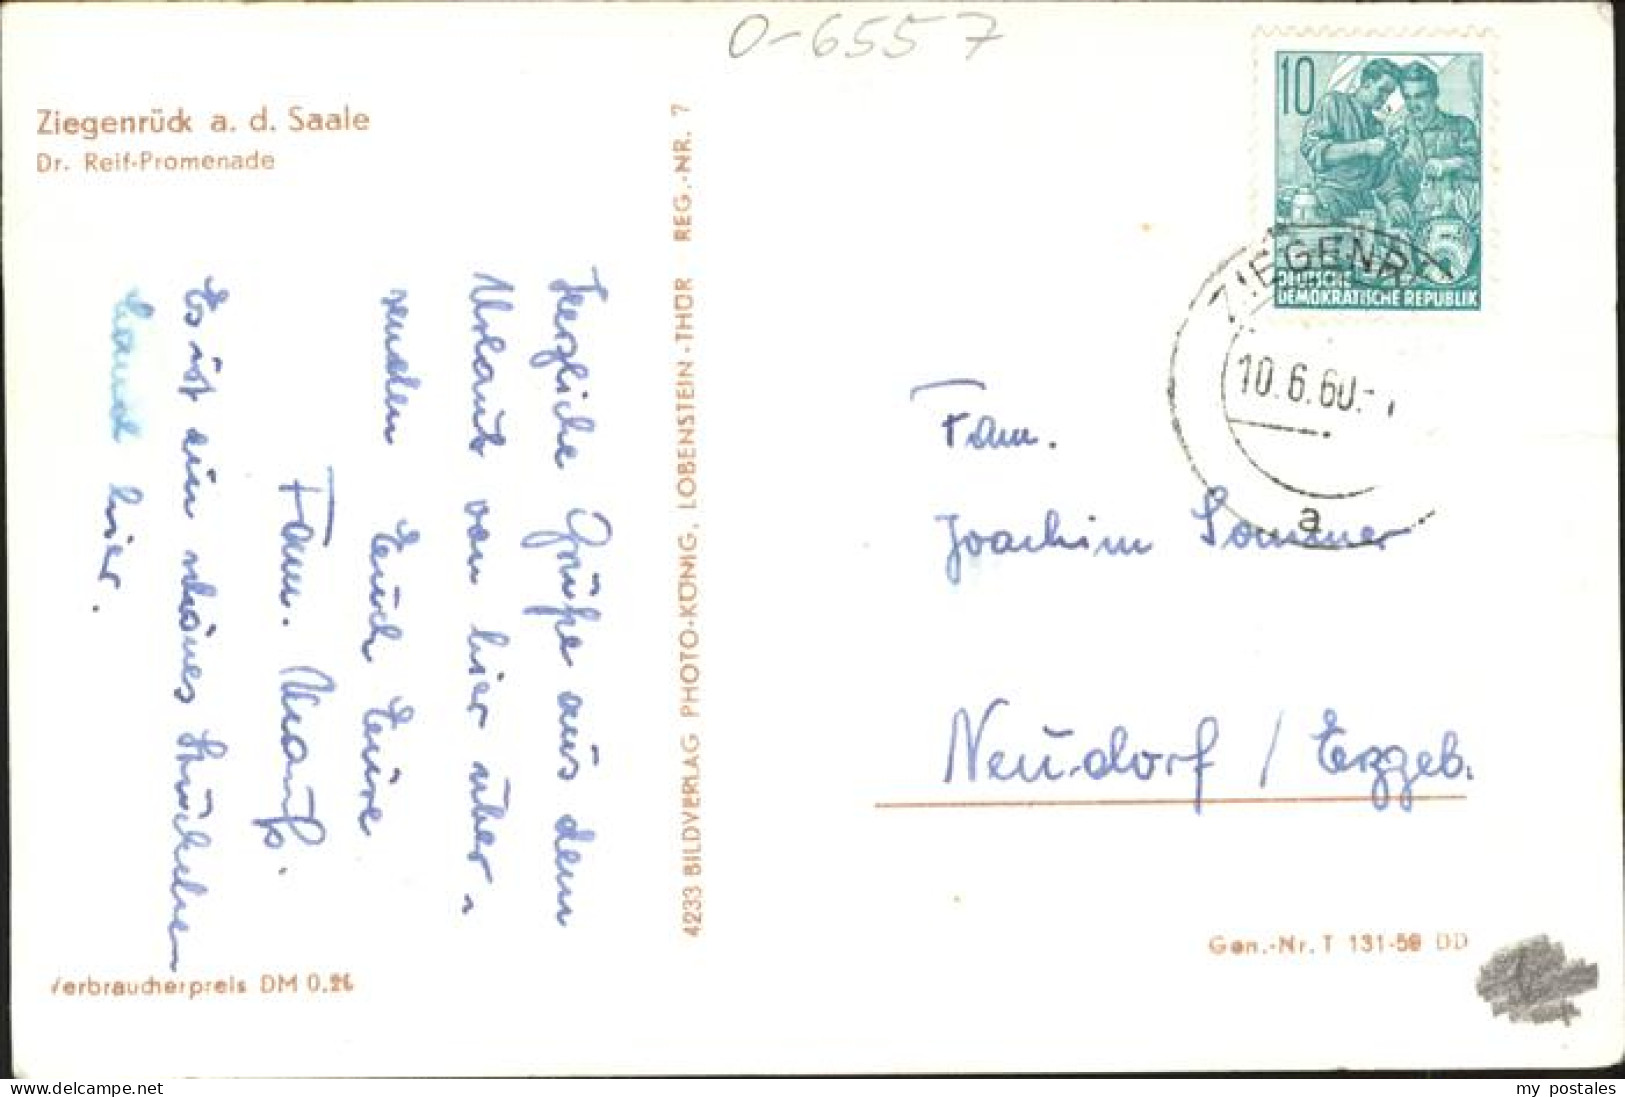 O-6557
Ziegenrück a. d. Saale
Dr. Reif-Promenade
Herzliche Grüße aus dem
Urlaub von hier über-
senden Euch Eure
Fam.
Es ist ein schönes Stückchen
hier.
Verbraucherpreis DM 0.26
4233 BILDVERLAG PHOTO-KÖNIG, LOBENSTEIN-THÜR REG.-NR. 7
10
5
DEUTSCHE
DEMOKRATISCHE REPUBLIK
10.6.60.-
a
Fam.
Joachim Sommer
Neudorf / Erzgeb.
Gen.-Nr. T 131-59 DD
my postales
my postales